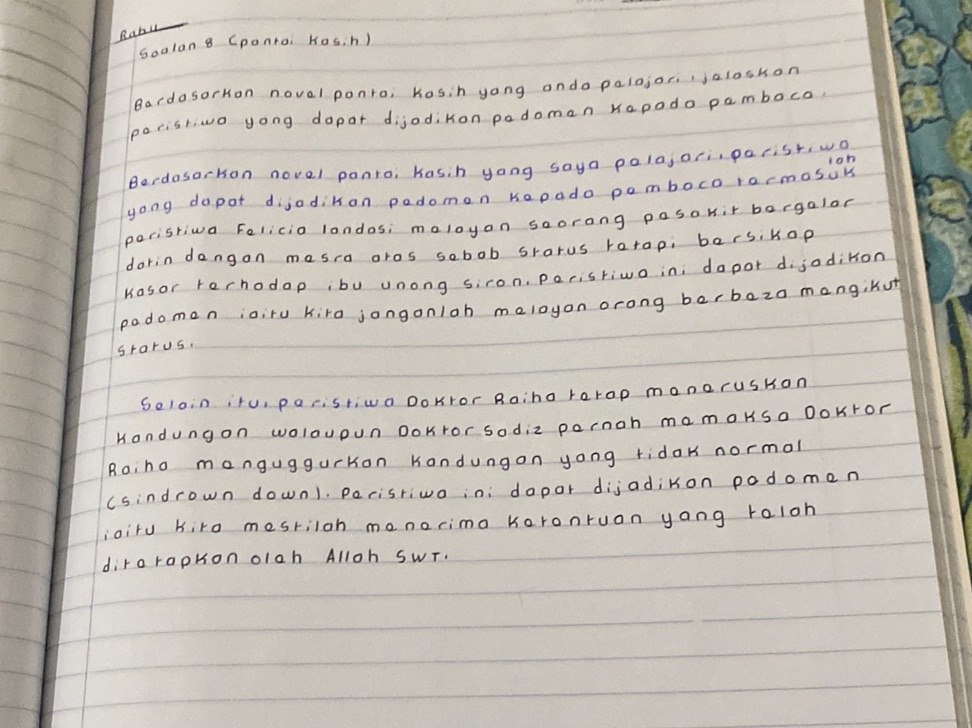 Rabu
Soalan 8 (pantai Kasih)
Berdasarkan novel pantai Kasih yang anda pelajari, jelaskan
peristiwa yang dapat dijadikan pedoman kepada pembaca.
Berdasarkan novel pantai kasih yang saya pelajari, peristiwa
yang dapat dijadikan pedoman kepada pembaca termasuk
lah
peristiwa Felicia landasi melayan seorang pesakit bergelar
datin dengan mesra atas sebab status tetapi bersikap
kasar terhadap ibu unong siron. Peristiwa ini dapat dijadikan
pedoman iaitu kita janganlah melayan orang berbeza mengikut
status.
Selain itu, peristiwa Doktor Raiha tetap meneruskan
kandungan walaupun Doktor Sadiz pernah memaksa Doktor
Raiha menguggurkan kandungan yang tidak normal
(sindrown down). Peristiwa ini dapat dijadikan pedoman
iaitu kita mestilah menerima ketentuan yang telah
ditetapkan oleh Allah SWT.